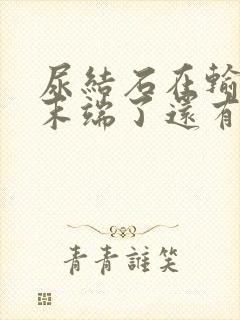 尿結石在輸
末端了還有
青青誰笑